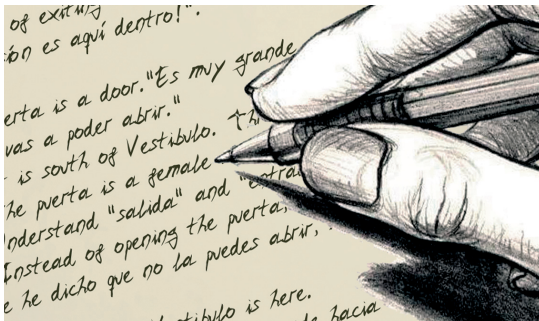 of exiting
ión es aquí dentro!".
erta is a door. "Es muy grande
vas a poder abrir."
is south of Vestibulo. Th
he puerta is a female
nderstand "salida" and "entra
Instead of opening the puerta,
e he dicho que no la puedes abrir,
stibulo is here.
hacia